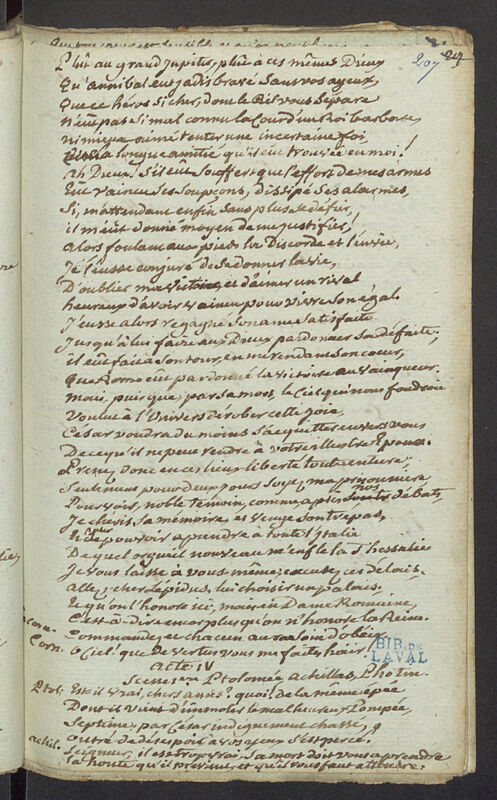 Plût au grand Jupiter, plût à ces mêmes Dieux
Qu'annibal eut jadis bravé sans vos ayeux,
Que ce héros si cher, dont le Ciel vous Sépare
n'eût pas si mal connu la Cour d'un Roi barbare,
ni mieux aimé tenter une incertaine foi
la longue amitié qu'il eut trouvée en moi!
ah Dieux! s'il eût Souffert que l'effort de mes armes
Eût vaincu Ses Soupçons, dissipé Ses alarmes,
Si, m'attendant enfin Sans plus Se défier,
il m'eût donné moyen de me justifier,
alors foulant aux pieds la Discorde et l'envie,
Je l'eusse conjuré de Se donner la vie,
D'oublier ma victoire, et d'aimer un rival
heureux d'avoir vaincu pour vivre Son égal
J'eusse alors regagné Son ame Satisfaite
Jusqu'à lui faire aux Dieux pardonner Sa défaite;
il eût fait à Son tour, en me rendant Son coeur,
Que Rome eût pardonné la victoire au vainqueur.
mais, puisque, par Sa mort, le Ciel qui nous foudroie
Voulut à l'Univers dérober cette joie,
César voudra du moins S'acquitter envers vous
De ce qu'il ne peut rendre à votre illustre Epoux.
Prenez donc en ces lieux liberté toute entiere;
Seulement pour deux jours Soyez ma prisonniere,
Pour voir, noble temoin, comme après nos débats,
Je chéris Sa mémoire, et venge Son trépas,
Et de pouvoir aprendre à toute l'Italie
De quel orgueil nouveau m'enfle la Thessalie
Je vous laisse à vous même; excusez ces délais.
allez, cher Lépidus, lui choisir un palais.
Et qu'on l'honore ici, mais en Dame Romaine,
C'est-à-dire un peu plus qu'on n'honore la Reine.
Commandez, et chacun aura Soin d'obéir.
Corn. ô Ciel! que de vertus vous me faites haïr!
acte IV
Scene 1ere Ptolomée achillas, Photin.
Ptol. Est-il vrai, chers amis? quoi! de la même épée
Dont il vient d'immoler le malheureux Pompée,
Septime, par César indignement chassé,
outré de désespoir à vos yeux S'est percé?
achil. Seigneur, il est trop vrai, Sa mort doit vous aprendre
la honte qu'il prévient, et qu'il vous faut attendre.
207
BIB. DE
LAVAL